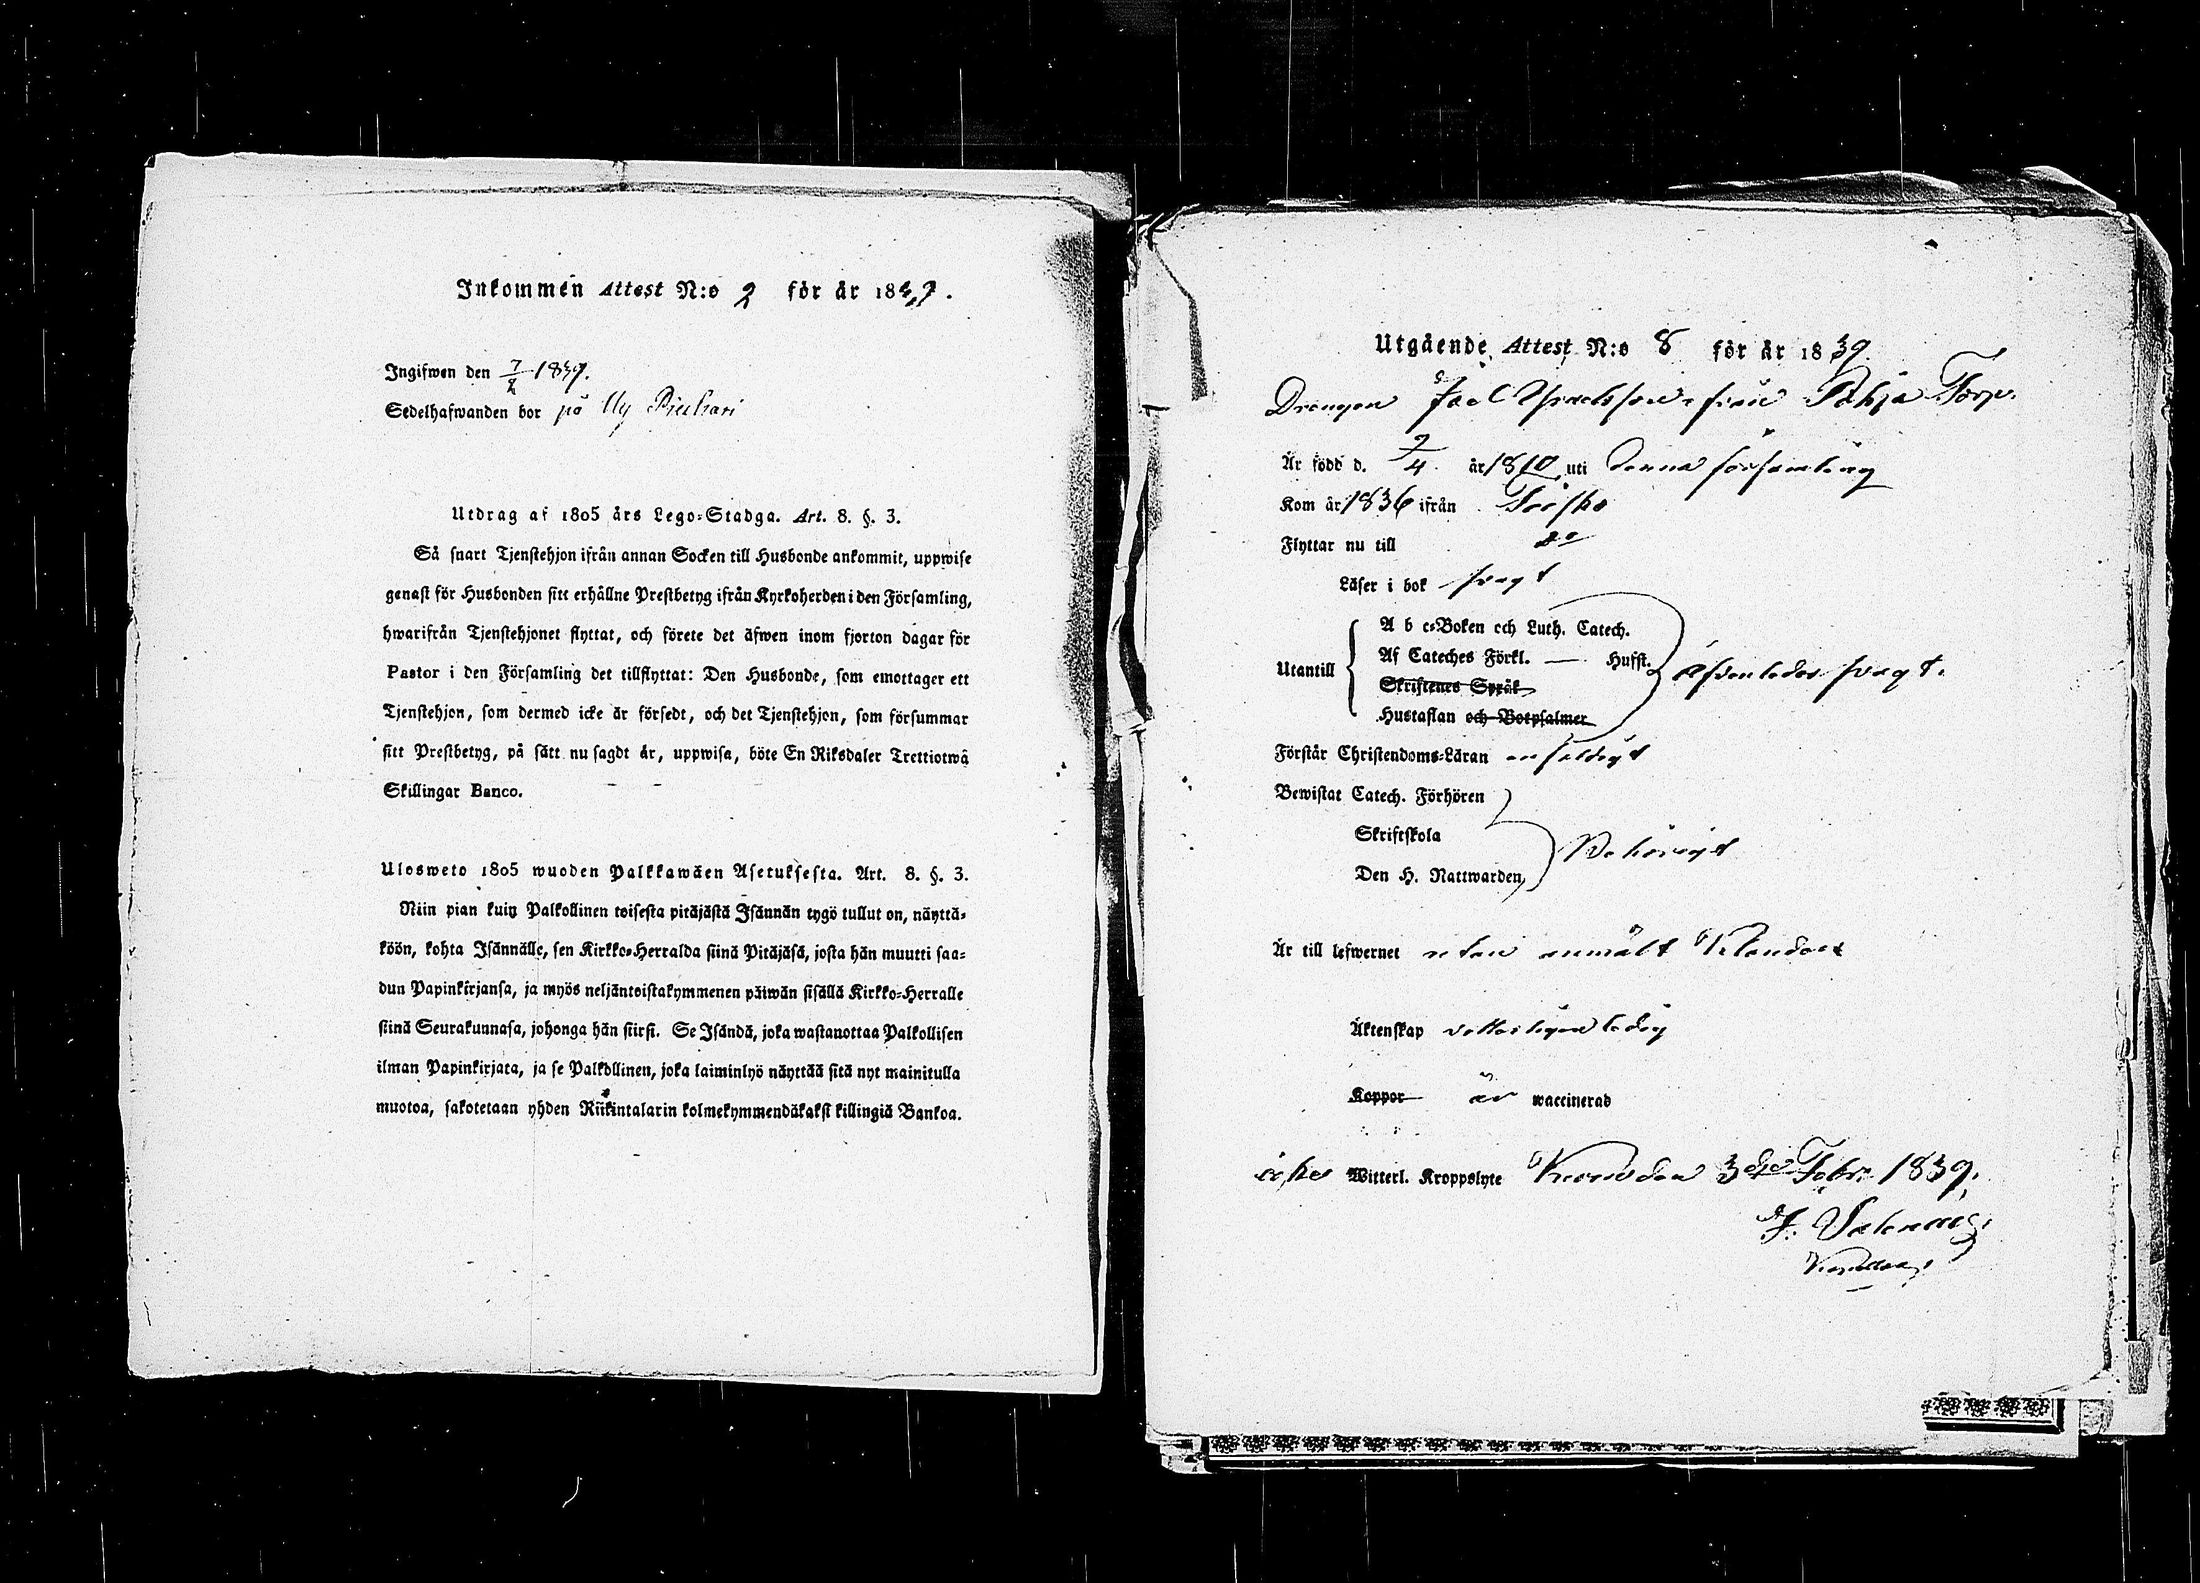 Inkommen Attest N:o 2 för år 1839.
Ingifwen den 7/2 1839.
Sedelhafwanden bor på Uy Piuhari
Utdrag af 1805 års Lego-Stadga. Art. 8. §. 3.
Så snart Tjenstehjon ifrån annan Socken till Husbonde ankommit, uppwise
genast för Husbonden sitt erhållne Prestbetyg ifrån Kyrkoherden i den Församling,
hwarifrån Tjenstehjonet flyttat, och förete det äfwen inom fjorton dagar för
Pastor i den Församling det tillflyttat: Den Husbonde, som emottager ett
Tjenstehjon, som dermed icke är försedt, och det Tjenstehjon, som försummar
sitt Prestbetyg, på sätt nu sagdt är, uppwisa, böte En Riksdaler Trettiotwå
Skillingar Banco.
Ulosweto 1805 wuoden Palkkawäen Asetuksesta. Art. 8. §. 3.
Niin pian kuin Palkollinen toisesta pitäjästä Isännän tygö tullut on, näyttä-
köön, kohta Isännälle, sen Kirkko-Herralda siinä Pitäjäsä, josta hän muutti saa-
dun Papinkirjansa, ja myös neljäntoistakymmenen päiwän sisällä Kirkko-Herralle
siinä Seurakunnasa, johonga hän siirsi. Se Isändä, joka wastanottaa Palkollisen
ilman Papinkirjata, ja se Palkollinen, joka laiminlyö näyttää sitä nyt mainitulla
muotoa, sakotetaan yhden Riikintalarin kolmekymmendäkaksi killingiä Bankoa.
Utgående Attest N:o 8 för år 1839.
Drengen Joel Israelsson ifrån Pohja Torp.
Är född d. 7/4 år 1810 uti denna församling
Kom år 1836 ifrån Töfsko
Flyttar nu till do
Läser i bok svagt
A b c-Boken och Luth. Catech.
Af Cateches Förkl. — Husst.
Utantill äfvenledes svagt.
Skriftenes Språk
Hustaflan och Botpsalmer
Förstår Christendoms-Läran enfaldigt
Bewistat Catech. Förhören
Skriftskola
Behörigt
Den H. Nattwarden
Är till lefwernet utan anmält klander
Äktenskap vetterligen ledig
Koppor är waccinerad
icke Witterl. Kroppslyte den 3dje Febr. 1839.